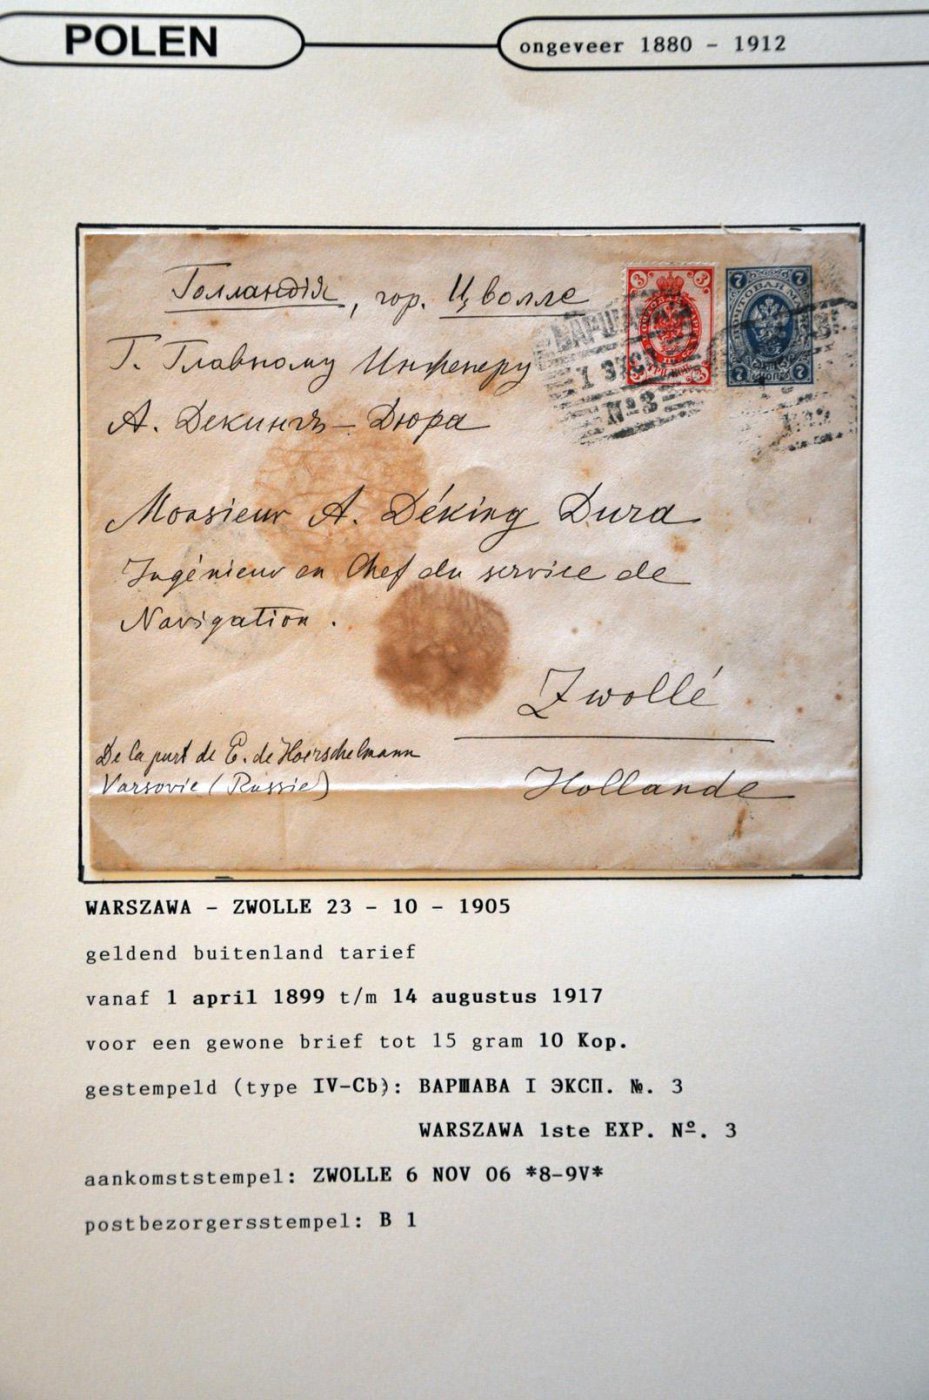 POLEN
ongeveer 1880 - 1912
Голландія, гор. Цволле
Г. Главному Инженеру
А. Декингъ - Дюра
Monsieur A. Déking Dura
Ingénieur en Chef du service de
Navigation.
Zwollé
Hollande
De la part de E. de Hoerschelmann
Varsovie (Russie)
3 3
7 7
ВАРШАВА
1 ЭКСП
№3
3 3
7 7
WARSZAWA - ZWOLLE 23 - 10 - 1905
geldend buitenland tarief
vanaf 1 april 1899 t/m 14 augustus 1917
voor een gewone brief tot 15 gram 10 Kop.
gestempeld (type IV-Cb): ВАРШАВА I ЭКСП. №. 3
WARSZAWA 1ste EXP. Nº. 3
aankomststempel: ZWOLLE 6 NOV 06 *8-9V*
postbezorgersstempel: B 1